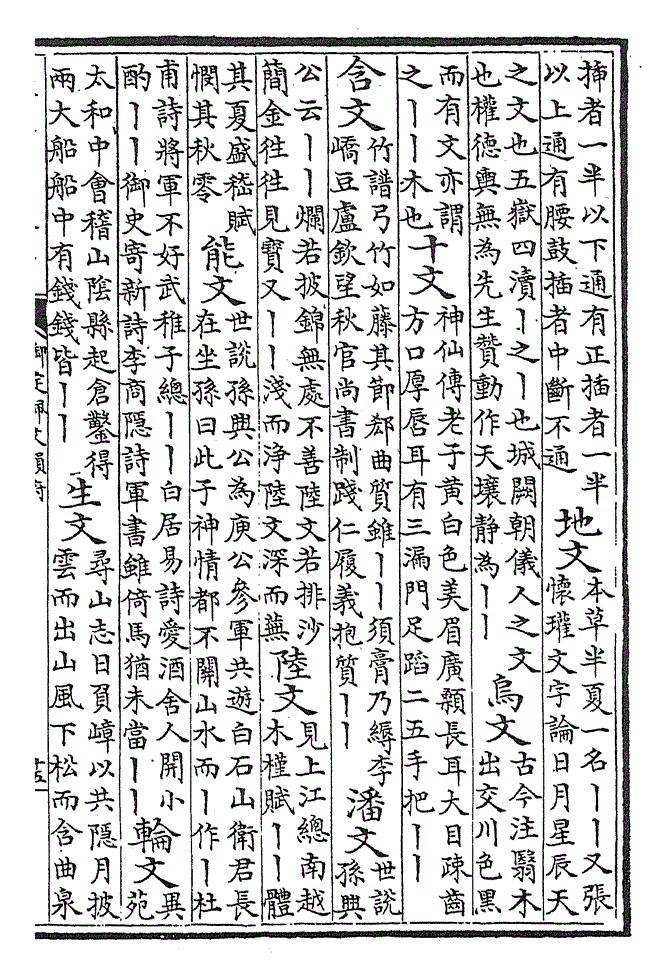 揷者一半以下通有正揷者一半
以上通有腰鼓揷者中斷不通
地文
本草半夏一名丨丨又張
懷瓘文字論日月星辰天
之文也五嶽四瀆丨之丨也城闕朝儀人之文
也權德輿無為先生贊動作天壤静為丨丨
烏文
古今注翳木
出交川色黑
而有文亦謂
之丨丨木也
十文
神仙傳老子黄白色美眉廣顙長耳大目疎齒
方口厚唇耳有三漏門足蹈二五手把丨丨
含文
竹譜弓竹如藤其節郄曲質雖丨丨須膏乃縟李
嶠豆盧欽望秋官尚書制踐仁履義抱質丨丨
潘文
世説
孫興
公云丨丨爛若披錦無處不善陸文若排沙
簡金往往見寶又丨丨淺而浄陸文深而蕪
陸文
見上江總南越
木槿賦丨丨體
其夏盛嵇賦
憫其秋零
能文
世説孫興公為庾公參軍共遊白石山衛君長
在坐孫曰此子神情都不關山水而丨作丨杜
甫詩將軍不好武稚子總丨丨白居易詩愛酒舍人開小
酌丨丨御史寄新詩李商隱詩軍書雖倚馬猶未當丨丨
輪文
異
苑
太和中會稽山陰縣起倉鑿得
兩大船船中有錢錢皆丨丨
生文
尋山志日負嶂以共隱月披
雲而出山風下松而含曲泉
御定佩文韻府